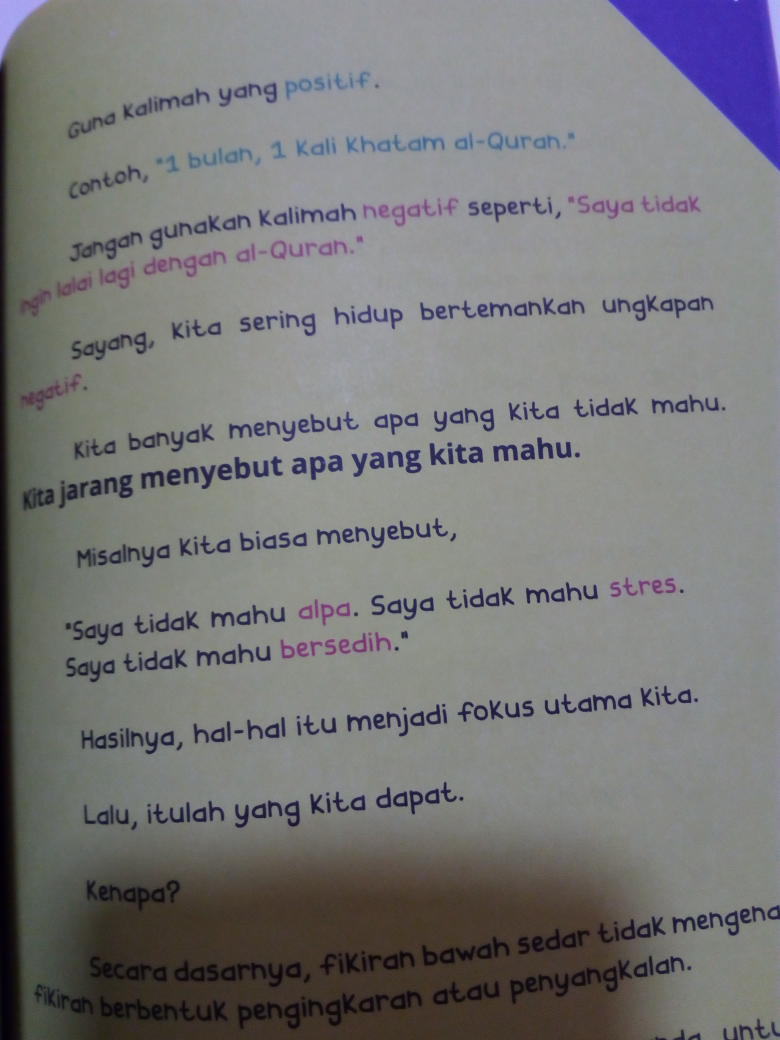 Guna kalimah yang positif.
Contoh, "1 bulan, 1 kali khatam al-Quran."
Jangan gunakan kalimah negatif seperti, "Saya tidak
ingin lalai lagi dengan al-Quran."
Sayang, kita sering hidup bertemankan ungkapan
negatif.
Kita banyak menyebut apa yang kita tidak mahu.
Kita jarang menyebut apa yang kita mahu.
Misalnya kita biasa menyebut,
"Saya tidak mahu alpa. Saya tidak mahu stres.
Saya tidak mahu bersedih."
Hasilnya, hal-hal itu menjadi fokus utama kita.
Lalu, itulah yang kita dapat.
Kenapa?
Secara dasarnya, fikiran bawah sedar tidak
fikiran berbentuk pengingkaran atau penyangkalan.